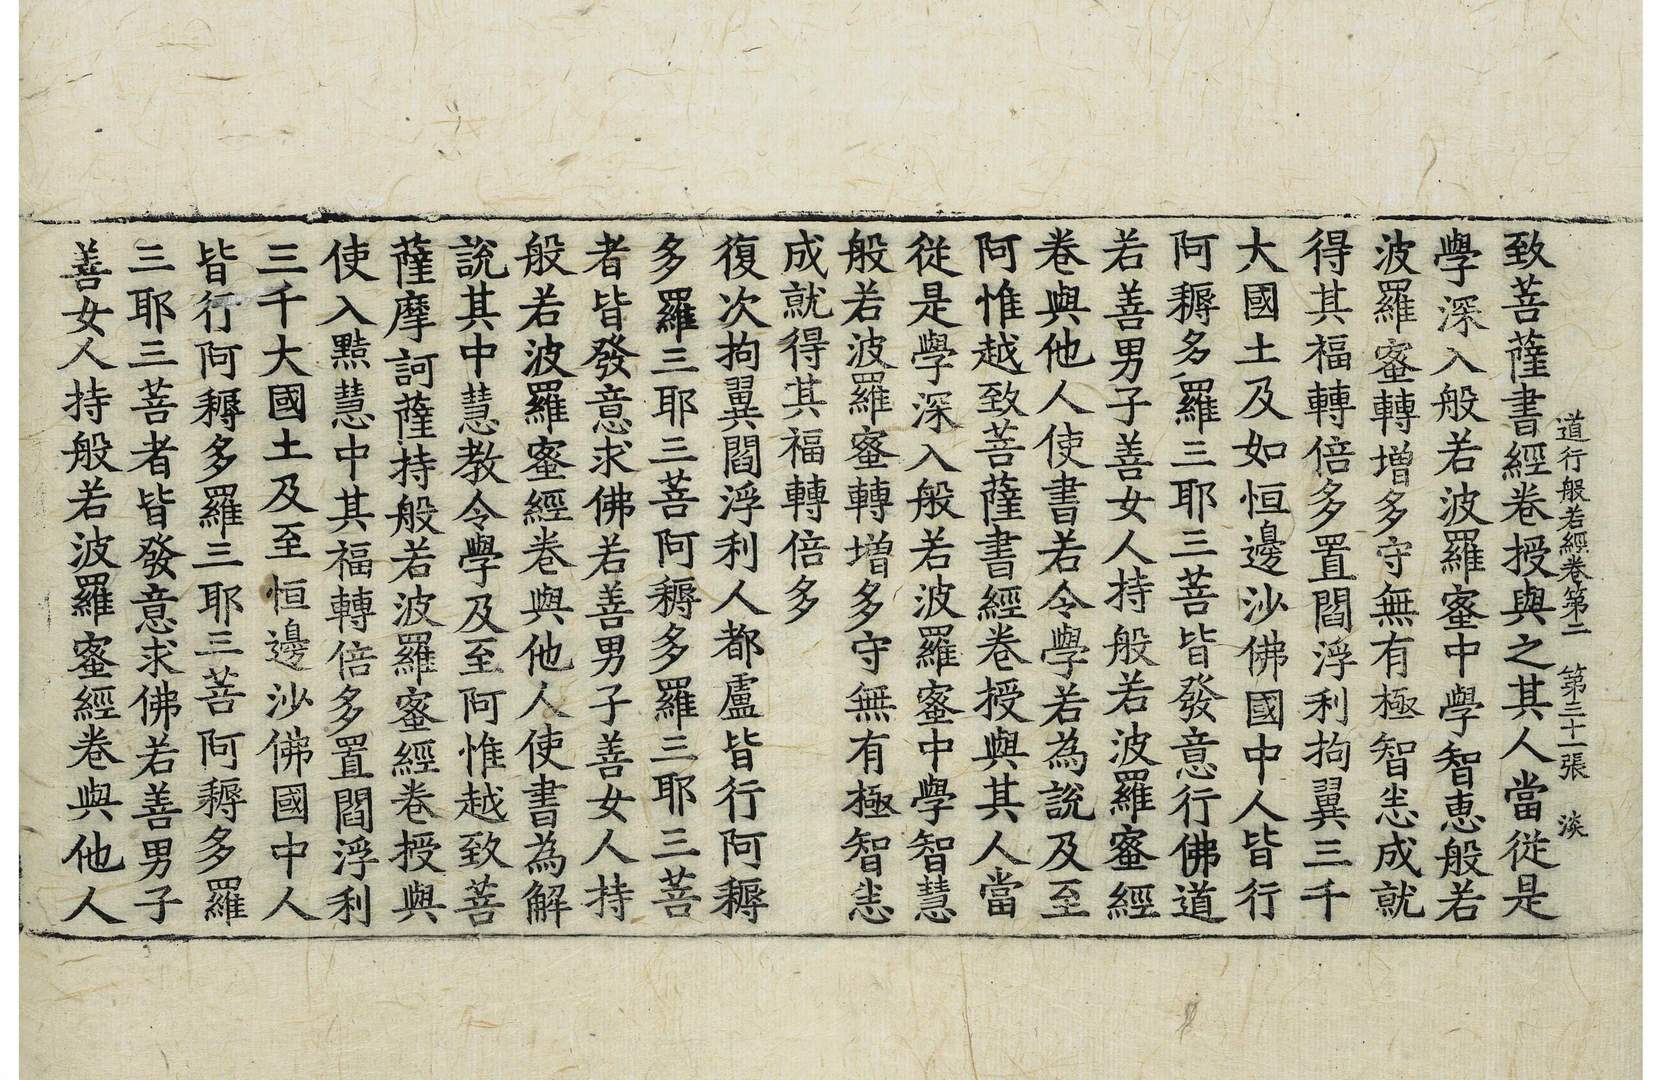 道行般若經卷第二　第三十一張　淡
致菩薩書經卷授與之其人當從是
學深入般若波羅蜜中學智惠般若
波羅蜜轉增多守無有極智悉成就
得其福轉倍多置閻浮利拘翼三千
大國土及如恒邊沙佛國中人皆行
阿耨多羅三耶三菩皆發意行佛道
若善男子善女人持般若波羅蜜經
卷與他人使書若令學若為說及至
阿惟越致菩薩書經卷授與其人當
從是學深入般若波羅蜜中學智慧
般若波羅蜜轉增多守無有極智悉
成就得其福轉倍多
復次拘翼閻浮利人都盧皆行阿耨
多羅三耶三菩阿耨多羅三耶三菩
者皆發意求佛若善男子善女人持
般若波羅蜜經卷與他人使書為解
說其中慧教令學及至阿惟越致菩
薩摩訶薩持般若波羅蜜經卷授與
使入黠慧中其福轉倍多置閻浮利
三千大國土及至恒邊沙佛國中人
皆行阿耨多羅三耶三菩阿耨多羅
三耶三菩者皆發意求佛若善男子
善女人持般若波羅蜜經卷與他人